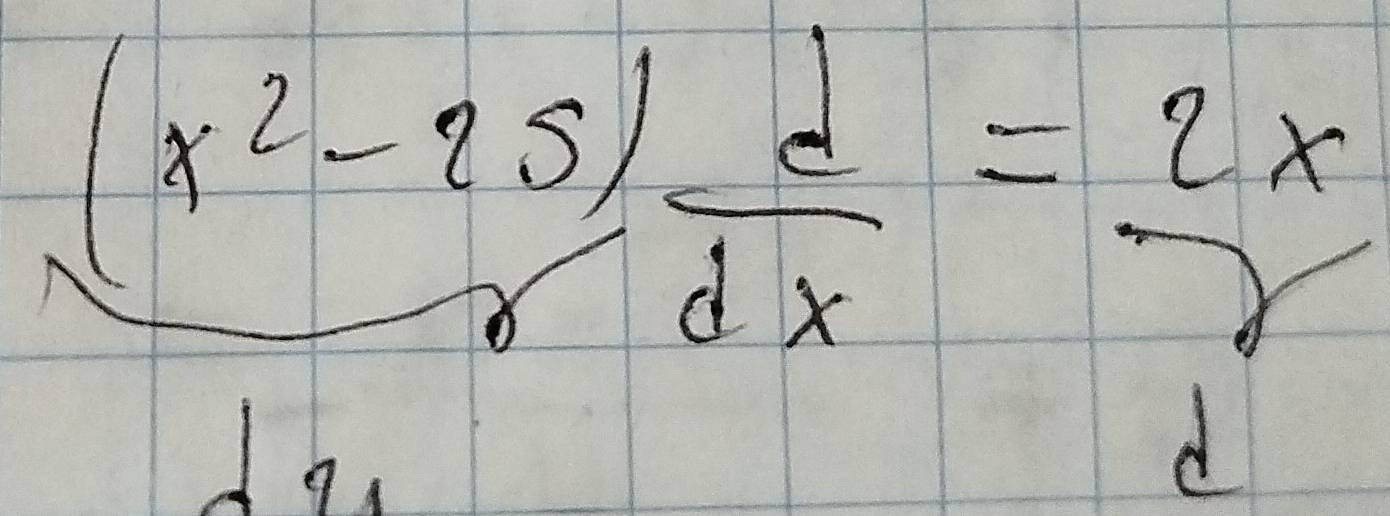 (x² - 25) d/dx = 2x
d